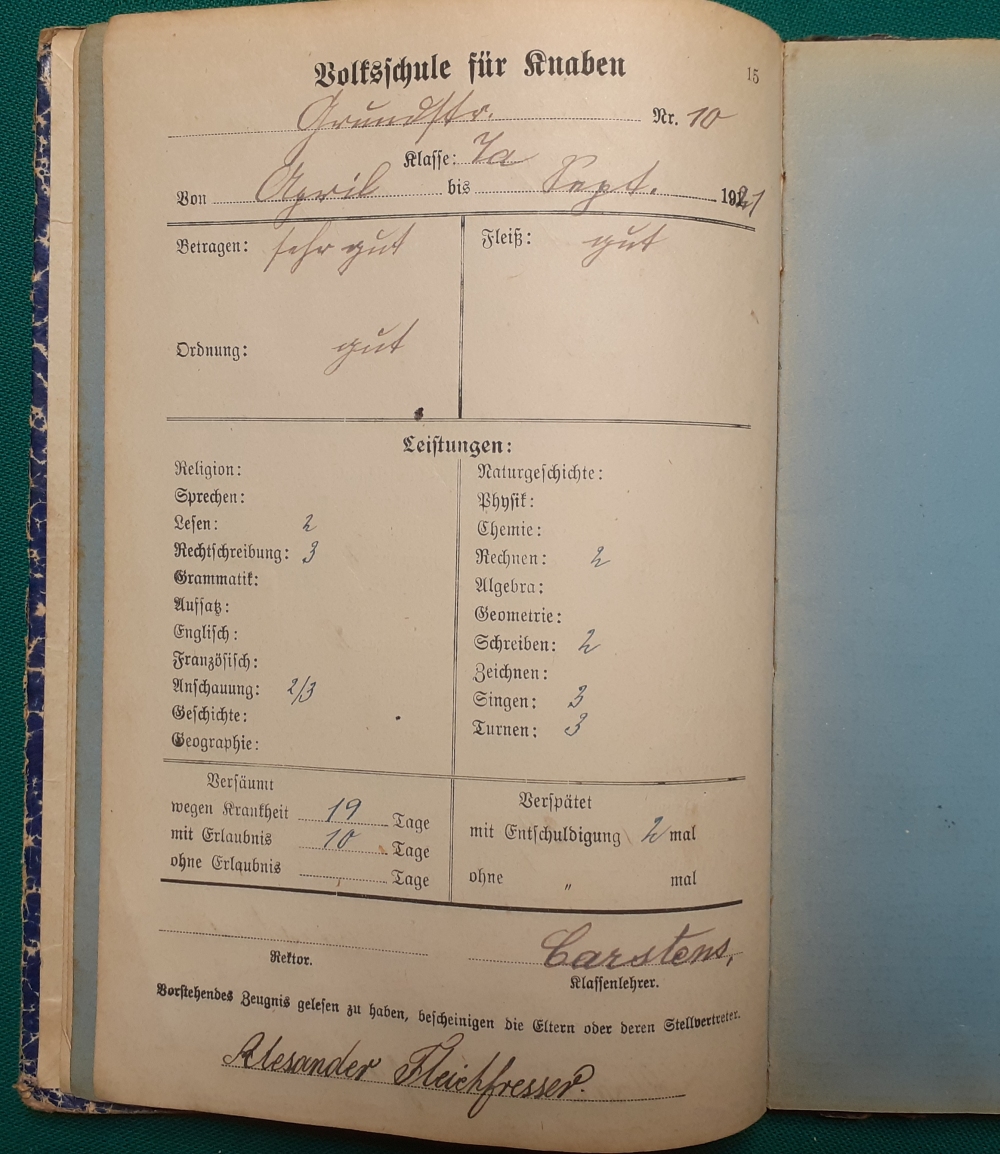 Volksschule für Knaben
15
Grundstr. Nr. 10
Klasse: 7a
Von April bis Sept. 1921
Betragen: sehr gut
Fleiß: gut
Ordnung: gut
Leistungen:
Religion:
Sprechen:
Lesen: 2
Rechtschreibung: 3
Grammatik:
Aufsatz:
Englisch:
Französisch:
Anschauung: 2/3
Geschichte:
Geographie:
Naturgeschichte:
Physik:
Chemie:
Rechnen: 2
Algebra:
Geometrie:
Schreiben: 2
Zeichnen:
Singen: 3
Turnen: 3
Versäumt
wegen Krankheit 19 Tage
mit Erlaubnis 10 Tage
ohne Erlaubnis Tage
Verspätet
mit Entschuldigung 2 mal
ohne " mal
Carstens,
Rektor.
Klassenlehrer.
Vorstehendes Zeugnis gelesen zu haben, bescheinigen die Eltern oder deren Stellvertreter.
Alesander Fleichfresser.